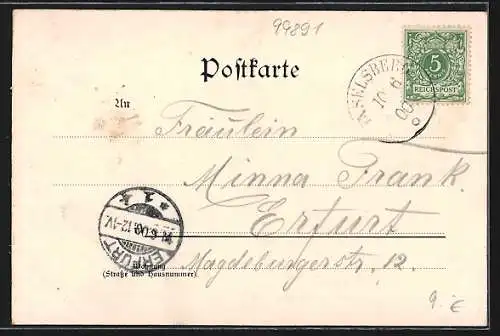 99891
Postkarte
5
REICHSPOST
INSELSBERG
10 6
00
An
Fräulein
Minna Frank.
Erfurt
Magdeburgerstr. 12.
* 1 k
6.00.12-1V.
ERFURT
Wohnung
(Straße und Hausnummer)
9.-€